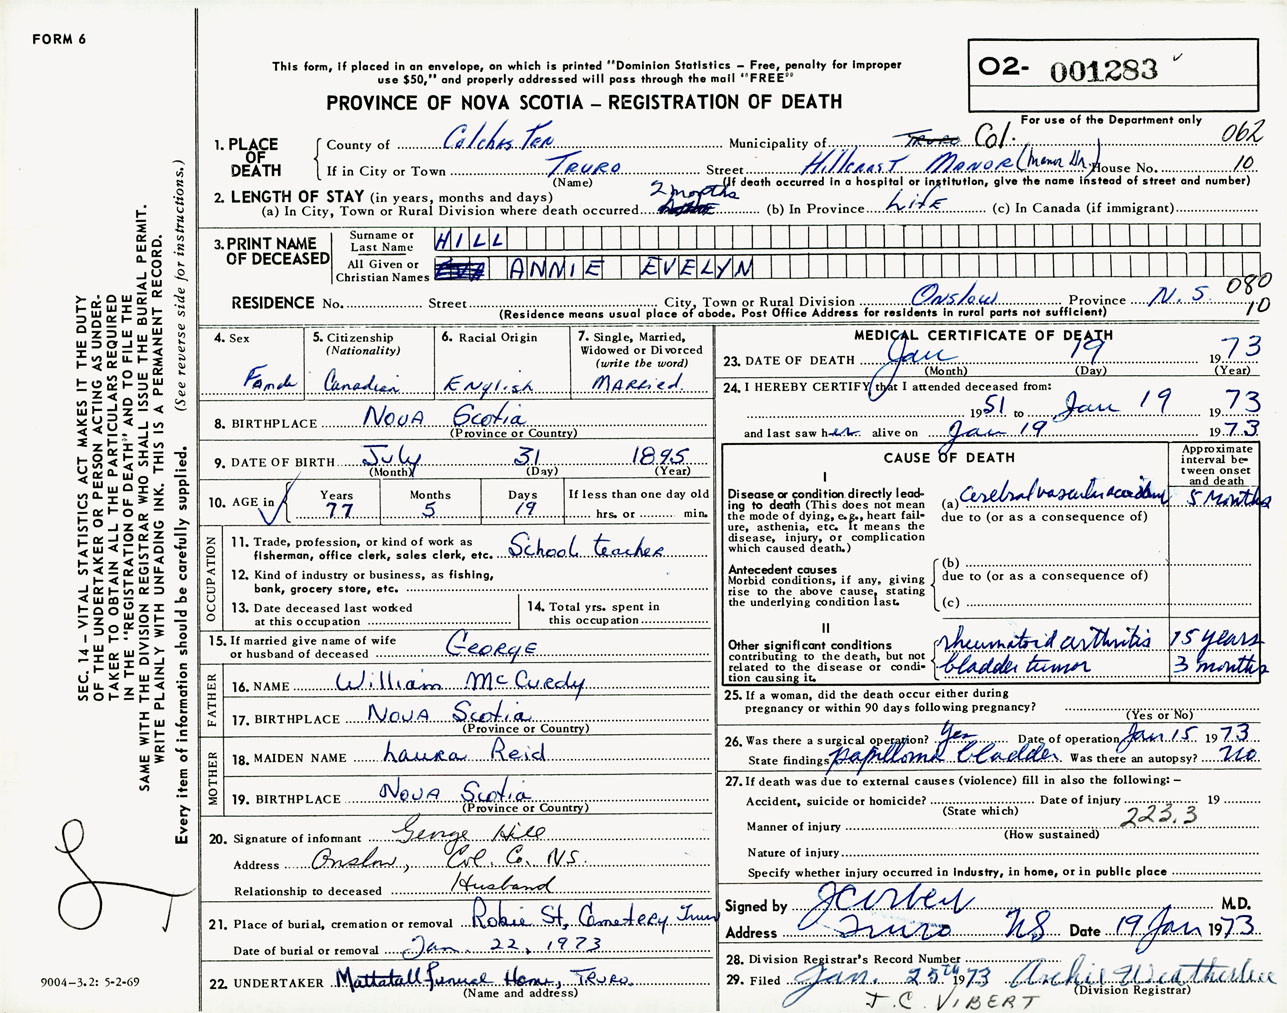 FORM 6
This form, if placed in an envelope, on which is printed "Dominion Statistics – Free, penalty for improper
use $50," and properly addressed will pass through the mail "FREE"
O2- 001283
PROVINCE OF NOVA SCOTIA – REGISTRATION OF DEATH
For use of the Department only
062
1. PLACE OF DEATH
County of Colchester Municipality of Truro Col.
If in City or Town TRURO Street Hillcrest Manor (Manor Dr.) House No. 10
(Name) (If death occurred in a hospital or institution, give the name instead of street and number)
2. LENGTH OF STAY (in years, months and days)
(a) In City, Town or Rural Division where death occurred 2 months (b) In Province Life (c) In Canada (if immigrant)
3. PRINT NAME OF DECEASED
Surname or Last Name HILL
All Given or Christian Names EVA ANNIE EVELYN
RESIDENCE No. Street City, Town or Rural Division Onslow Province N.S. 080
(Residence means usual place of abode. Post Office Address for residents in rural parts not sufficient) 10
4. Sex Female
5. Citizenship (Nationality) Canadian
6. Racial Origin English
7. Single, Married, Widowed or Divorced (write the word) Married
8. BIRTHPLACE Nova Scotia
(Province or Country)
9. DATE OF BIRTH July 31 1895
(Month) (Day) (Year)
10. AGE in Years 77 Months 5 Days 19 If less than one day old hrs. or min.
OCCUPATION
11. Trade, profession, or kind of work as
fisherman, office clerk, sales clerk, etc. School teacher
12. Kind of industry or business, as fishing,
bank, grocery store, etc.
13. Date deceased last worked
at this occupation
14. Total yrs. spent in
this occupation
15. If married give name of wife
or husband of deceased George
FATHER
16. NAME William McCurdy
17. BIRTHPLACE Nova Scotia
(Province or Country)
MOTHER
18. MAIDEN NAME Laura Reid
19. BIRTHPLACE Nova Scotia
(Province or Country)
20. Signature of informant George Hill
Address Onslow, Col. Co. N.S.
Relationship to deceased Husband
21. Place of burial, cremation or removal Robie St, Cemetery, Truro
Date of burial or removal Jan. 22, 1973
22. UNDERTAKER Mattatall Funeral Home, Truro.
(Name and address)
MEDICAL CERTIFICATE OF DEATH
23. DATE OF DEATH Jan 19 1973
(Month) (Day) (Year)
24. I HEREBY CERTIFY that I attended deceased from:
1951 to Jan 19 1973
and last saw her alive on Jan 19 1973
CAUSE OF DEATH
Approximate
interval be-
tween onset
and death
I
Disease or condition directly lead-
ing to death (This does not
mean the mode of dying, e.g., heart fail-
ure, asthenia, etc. It means the
disease, injury, or complication
which caused death.)
(a) Cerebral vascular accident 5 Months
due to (or as a consequence of)
Antecedent causes
Morbid conditions, if any, giving
rise to the above cause, stating
the underlying condition last.
(b)
due to (or as a consequence of)
(c)
II
Other significant conditions
contributing to the death, but not
related to the disease or condi-
tion causing it.
rheumatoid arthritis 15 years
bladder tumor 3 months
25. If a woman, did the death occur either during
pregnancy or within 90 days following pregnancy?
(Yes or No)
26. Was there a surgical operation? Yes Date of operation Jan 15 1973
State findings papilloma bladder Was there an autopsy? No
27. If death was due to external causes (violence) fill in also the following: –
Accident, suicide or homicide? Date of injury 19
(State which)
Manner of injury 223.3
(How sustained)
Nature of injury
Specify whether injury occurred in industry, in home, or in public place
Signed by M.D.
Address Truro NS Date 19 Jan 1973
28. Division Registrar's Record Number
29. Filed Jan. 25th 1973 Archie Weatherbee
(Division Registrar)
J. C. VIBERT
SEC. 14 – VITAL STATISTICS ACT MAKES IT THE DUTY
OF THE UNDERTAKER OR PERSON ACTING AS UNDER-
TAKER TO OBTAIN ALL THE PARTICULARS REQUIRED
IN THE "REGISTRATION OF DEATH" AND TO FILE THE
SAME WITH THE DIVISION REGISTRAR WHO SHALL ISSUE THE BURIAL PERMIT.
WRITE PLAINLY WITH UNFADING INK. THIS IS A PERMANENT RECORD.
Every item of information should be carefully supplied. (See reverse side for instructions.)
9004–3.2: 5-2-69